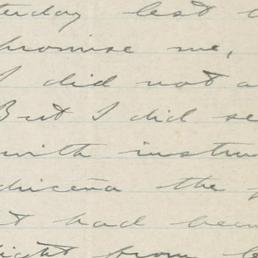 terday lest
promise me,
I did not a
But I did se
with instru
the
it had been
light from